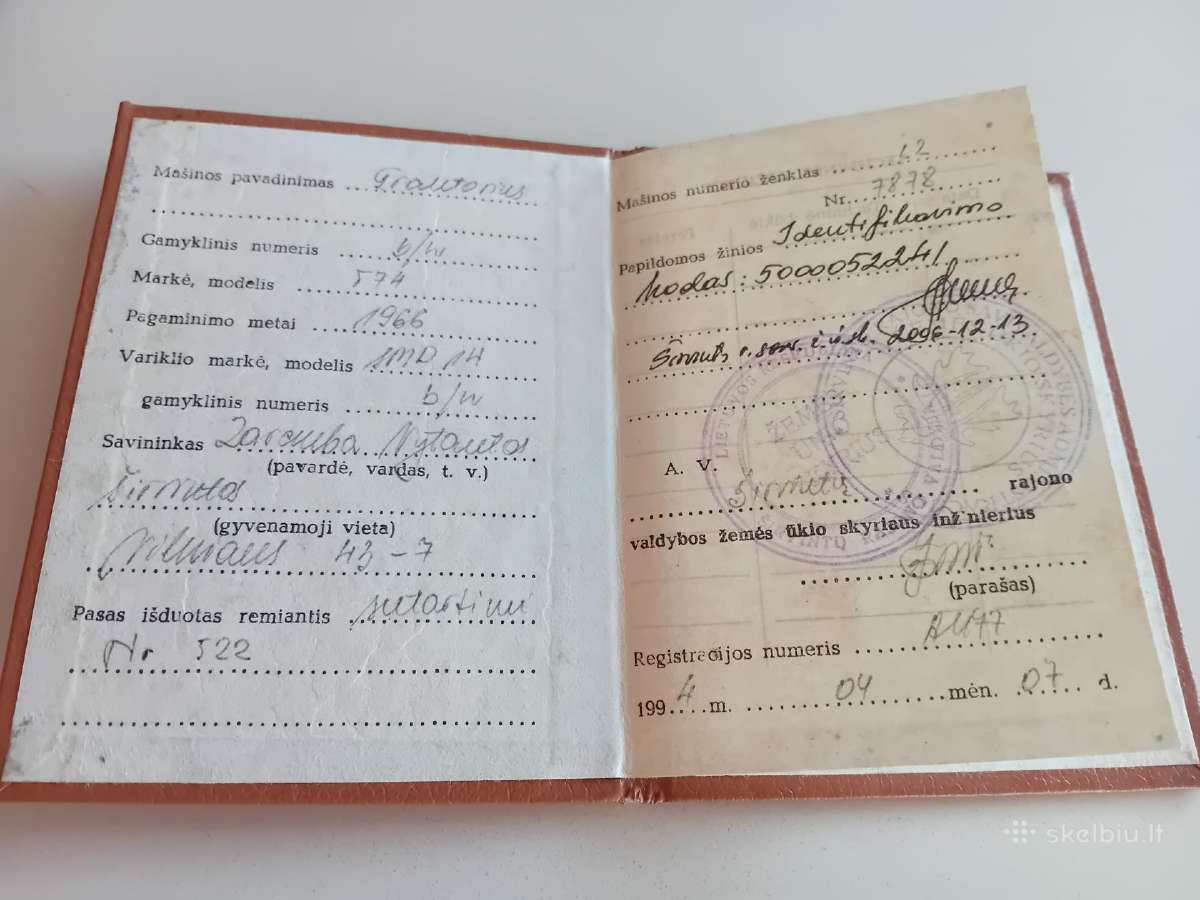 Mašinos pavadinimas Traktorius
Gamyklinis numeris b/n
Markė, modelis 574
Pagaminimo metai 1966
Variklio markė, modelis SMD 14
gamyklinis numeris b/n
Savininkas Vytautas
(pavardė, vardas, t. v.)
Širvintos
(gyvenamoji vieta)
Vilniaus 43-7
Pasas išduotas remiantis sutartimi
Nr 522
Mašinos numerio ženklas LZ
Nr. 7878
Papildomos žinios Identifikavimo
kodas: 5000052241.
2006-12-13
A. V.
Širvintų rajono
valdybos žemės ūkio skyriaus inžinierius
(parašas)
Registracijos numeris
1994 m. 04 mėn. 07 d.
skelbiu.lt